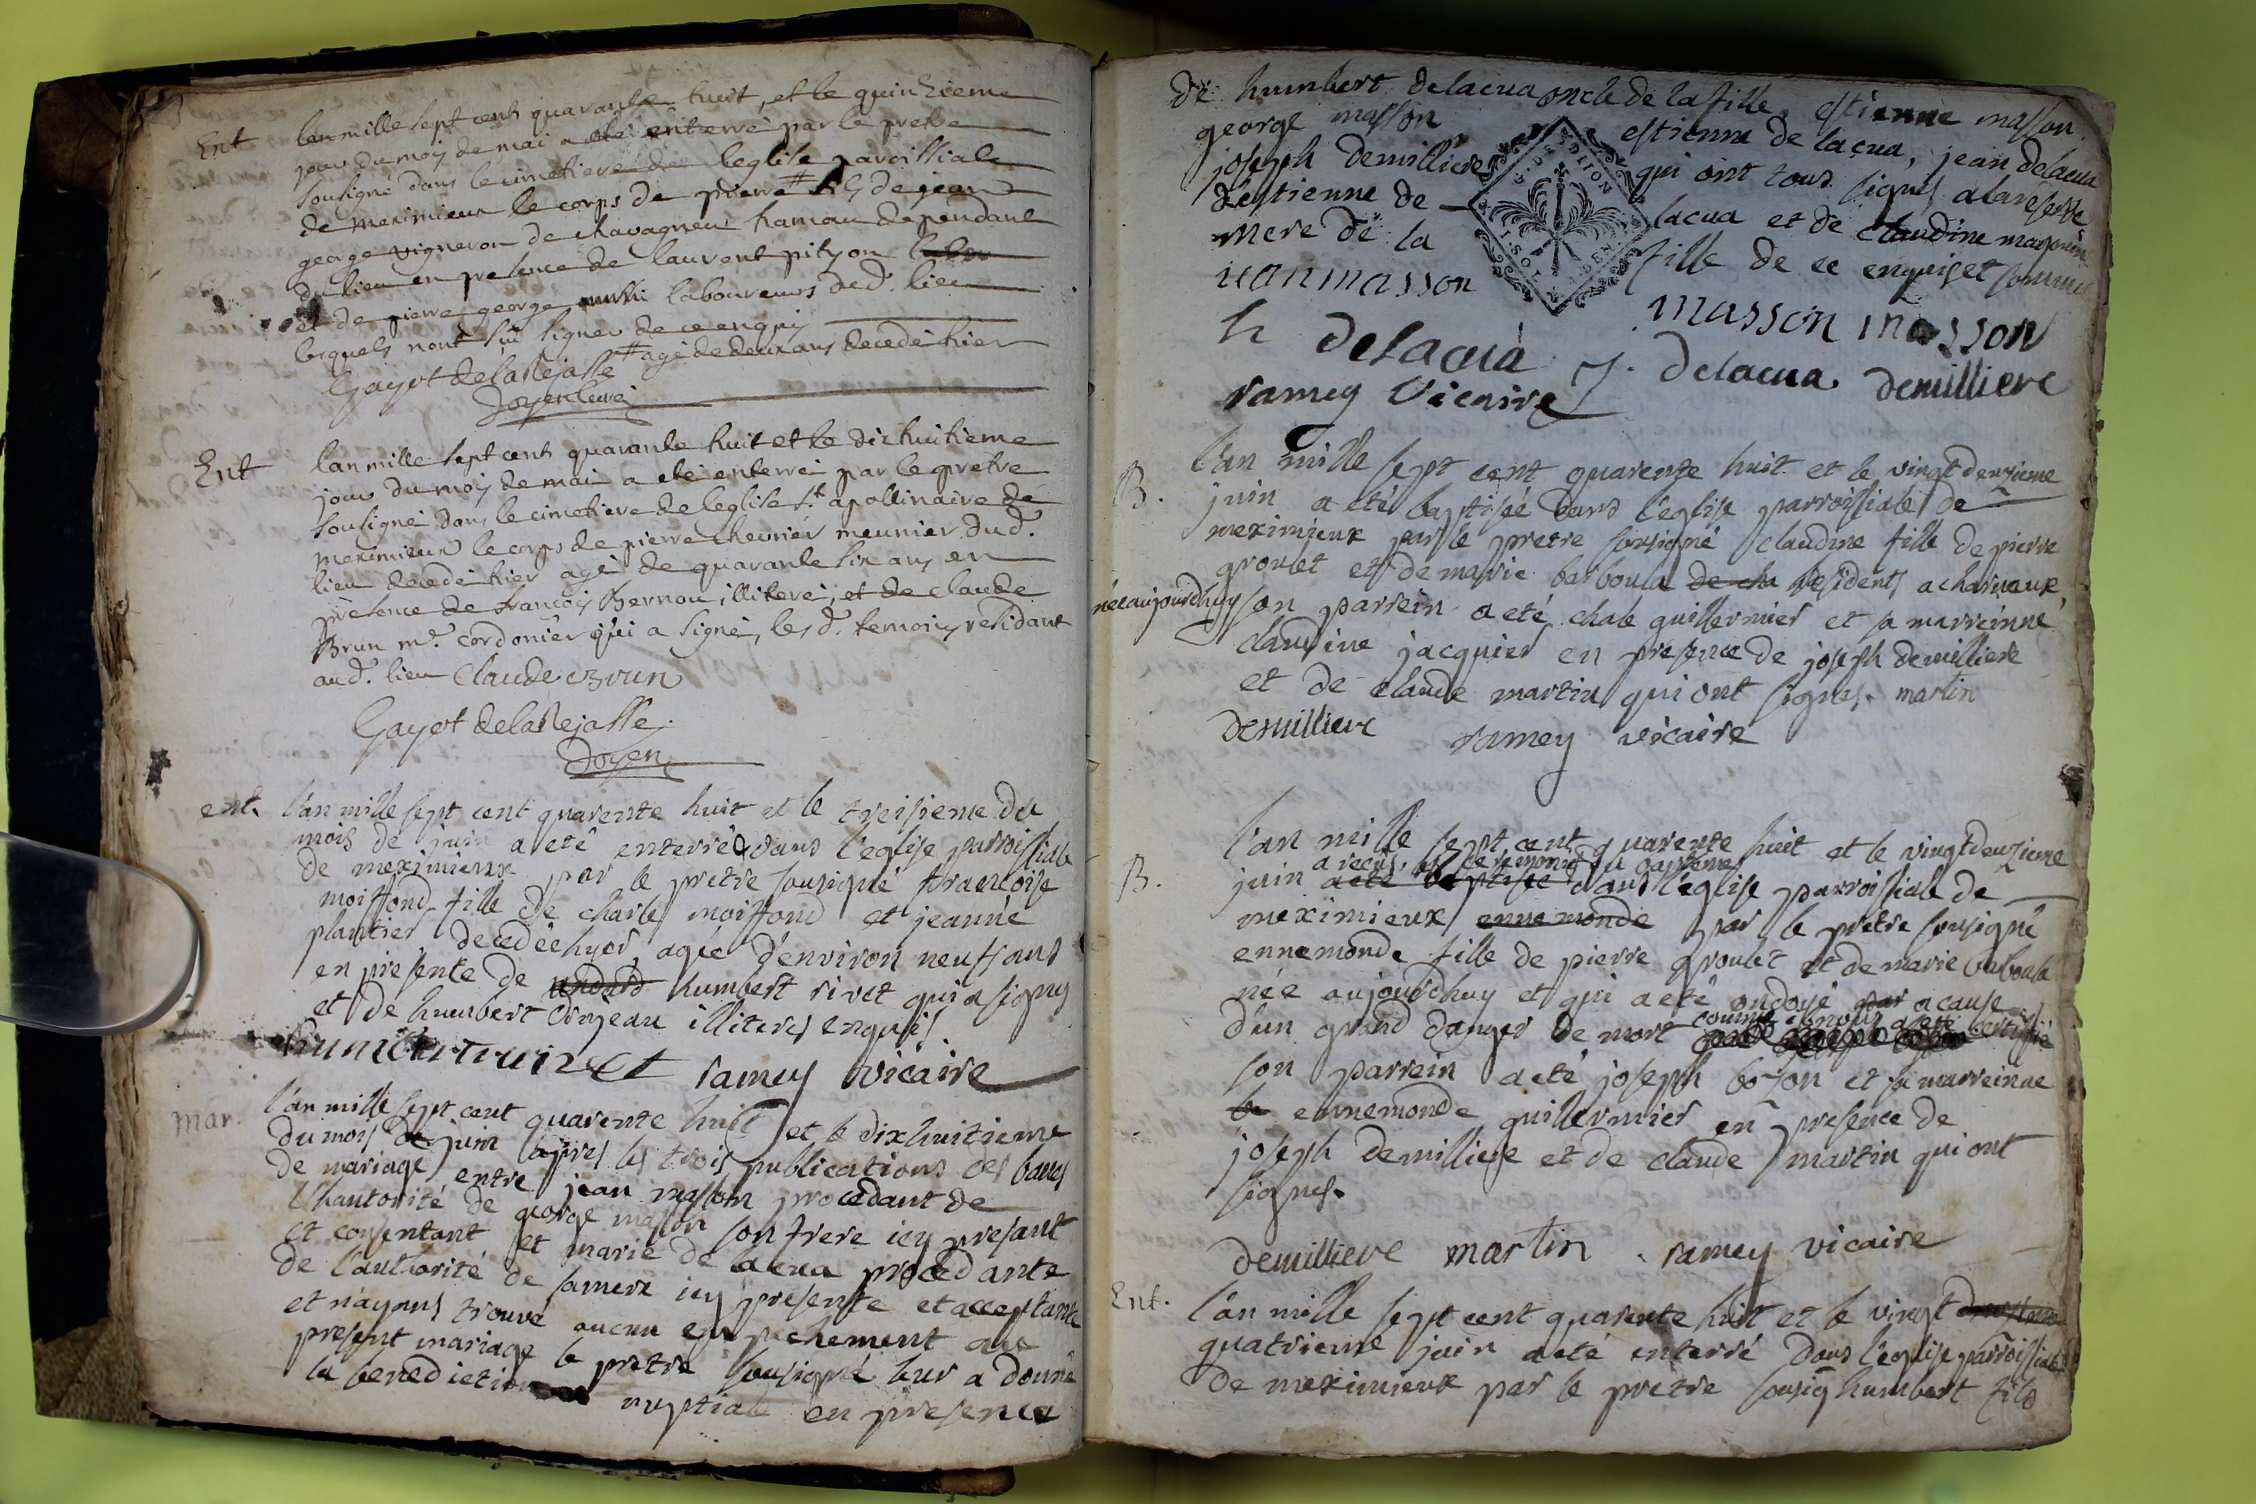 Ent
lan mille sept cents quarante huit, et le quinzieme
jour du moy de mai a eté enterré par le pretre
sousigné dans le cimetiere de leglise paroissiale
de meximieux le corps de pierre # fils de jean
george vigneron de chavagneux hameau dependant
du lieu en presence de laurent pityon
et de pierre george laboureurs dud. lieu
lesquels n'ont sçu signer de ce enquis
# agé de deux ans decedé hier
Gayot delaRejasse
Doyen curé
Ent
lan mille sept cents quarante huit et le dixhuitieme
jour du moy de mai a eté enterré par le pretre
sousigné dans le cimetiere de leglise st. apollinaire de
meximieux le corps de pierre chevrier meunier dud.
lieu decedé hier agé de quarante six ans en
presence de françois Bernou illiteré, et de claude
Brun me. cordonier qui a signé, les d. temoins residant
aud. lieu Claude Brun
Gayot delaRejasse
Doyen
ent.
l'an mille sept cent quarente huit et le treisieme du
mois de juin a eté enterrée dans l'eglise parroissiale
de meximieux par le pretre sousigné françoise
moiffond fille de charle moiffond et jeanne
plantier decedée hyer, agée d'environ neuf ans
en presente de humbert rivet qui a signé
et de humbert illiteres enquis
ramey vicaire
mar.
l'an mille sept cent quarente huit et le dixhuitieme
du mois de juin apres les trois publications des bancs
de mariage entre jean masson procedant de
l'hautorité de george masson son frere icy present
et consentant et marie de lacua procedante
de l'authorité de samere icy presente et acceptante
et n'ayant trouvé aucun empechement au
present mariage le pretre sousigné leur a donné
la benediction nuptiale en presence
de humbert delacua oncle de la fille, estienne masson
george masson estienne de lacua, jean delacua
joseph demilliere qui ont tous signés alareserve
d'estienne de lacua et de claudine
mere de la fille de ce enquis et sommé
jean masson masson masson
h delacua J. Delacua demilliere
ramey Vicaire
B.
l'an mille sept cent quarente huit et le vingtdeuxieme
juin a eté baptisée dans l'eglise parroissiale de
meximieux par le pretre sousigné claudine fille de pierre
groulet et de marie barboula de cha residents a charneaux,
née aujourdhuy son parrein a eté chale guillermier et sa marreinne
claudine jacquier en presence de joseph demilliere
et de claude martin qui ont signés. martin
demilliere ramey vicaire
B.
l'an mille sept cent quarente huit et le vingtdeuzieme
a reçeus les ceremonies du baptême
juin a eté baptisée dans l'eglise parroissiale de
meximieux ennemonde par le pretre sousigné
ennemonde fille de pierre groulet et de marie barboula
née aujourdhuy et qui a eté ondoyé par a cause
d'un grand danger de mort comme nous a eté certifié
son parrein a eté joseph boson et sa marreinne
la ennemonde guillermier en presence de
joseph demilliere et de claude martin qui ont
signes.
demilliere martin ramey vicaire
Ent.
l'an mille sept cent quarente huit et le vingt deuxieme
quatrieme juin a eté enterré dans l'eglise parroissiale
de meximieux par le pretre sousig humbert fils